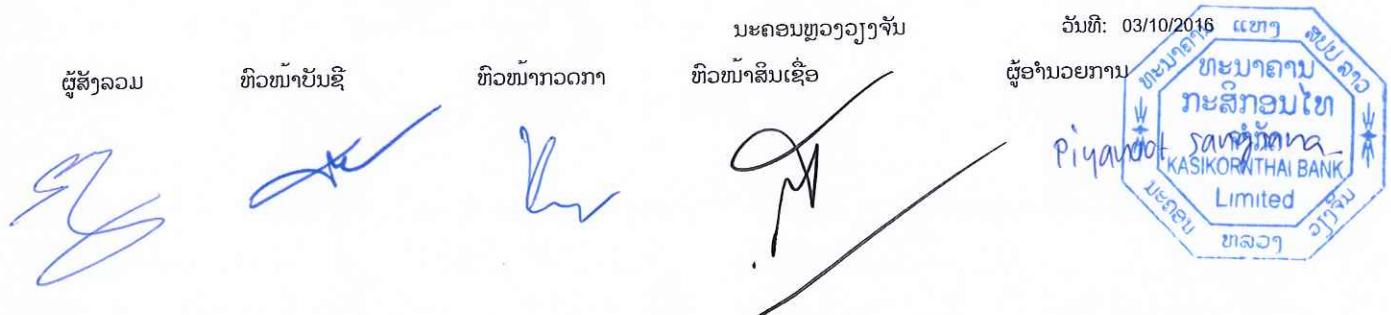 ນະຄອນຫຼວງວຽງຈັນ ວັນທີ: 03/10/2016
ຜູ້ສັງລວມ ຫົວໜ້າບັນຊີ ຫົວໜ້າກວດກາ ຫົວໜ້າສິນເຊື່ອ ຜູ້ອຳນວຍການ
ທະນາຄານ ແຫ່ງ ສປປ ລາວ
ທະນາຄານ
ກະສິກອນໄທ
ຈຳກັດ
KASIKORNTHAI BANK
Limited
ນະຄອນ ຫລວງ ວຽງຈັນ